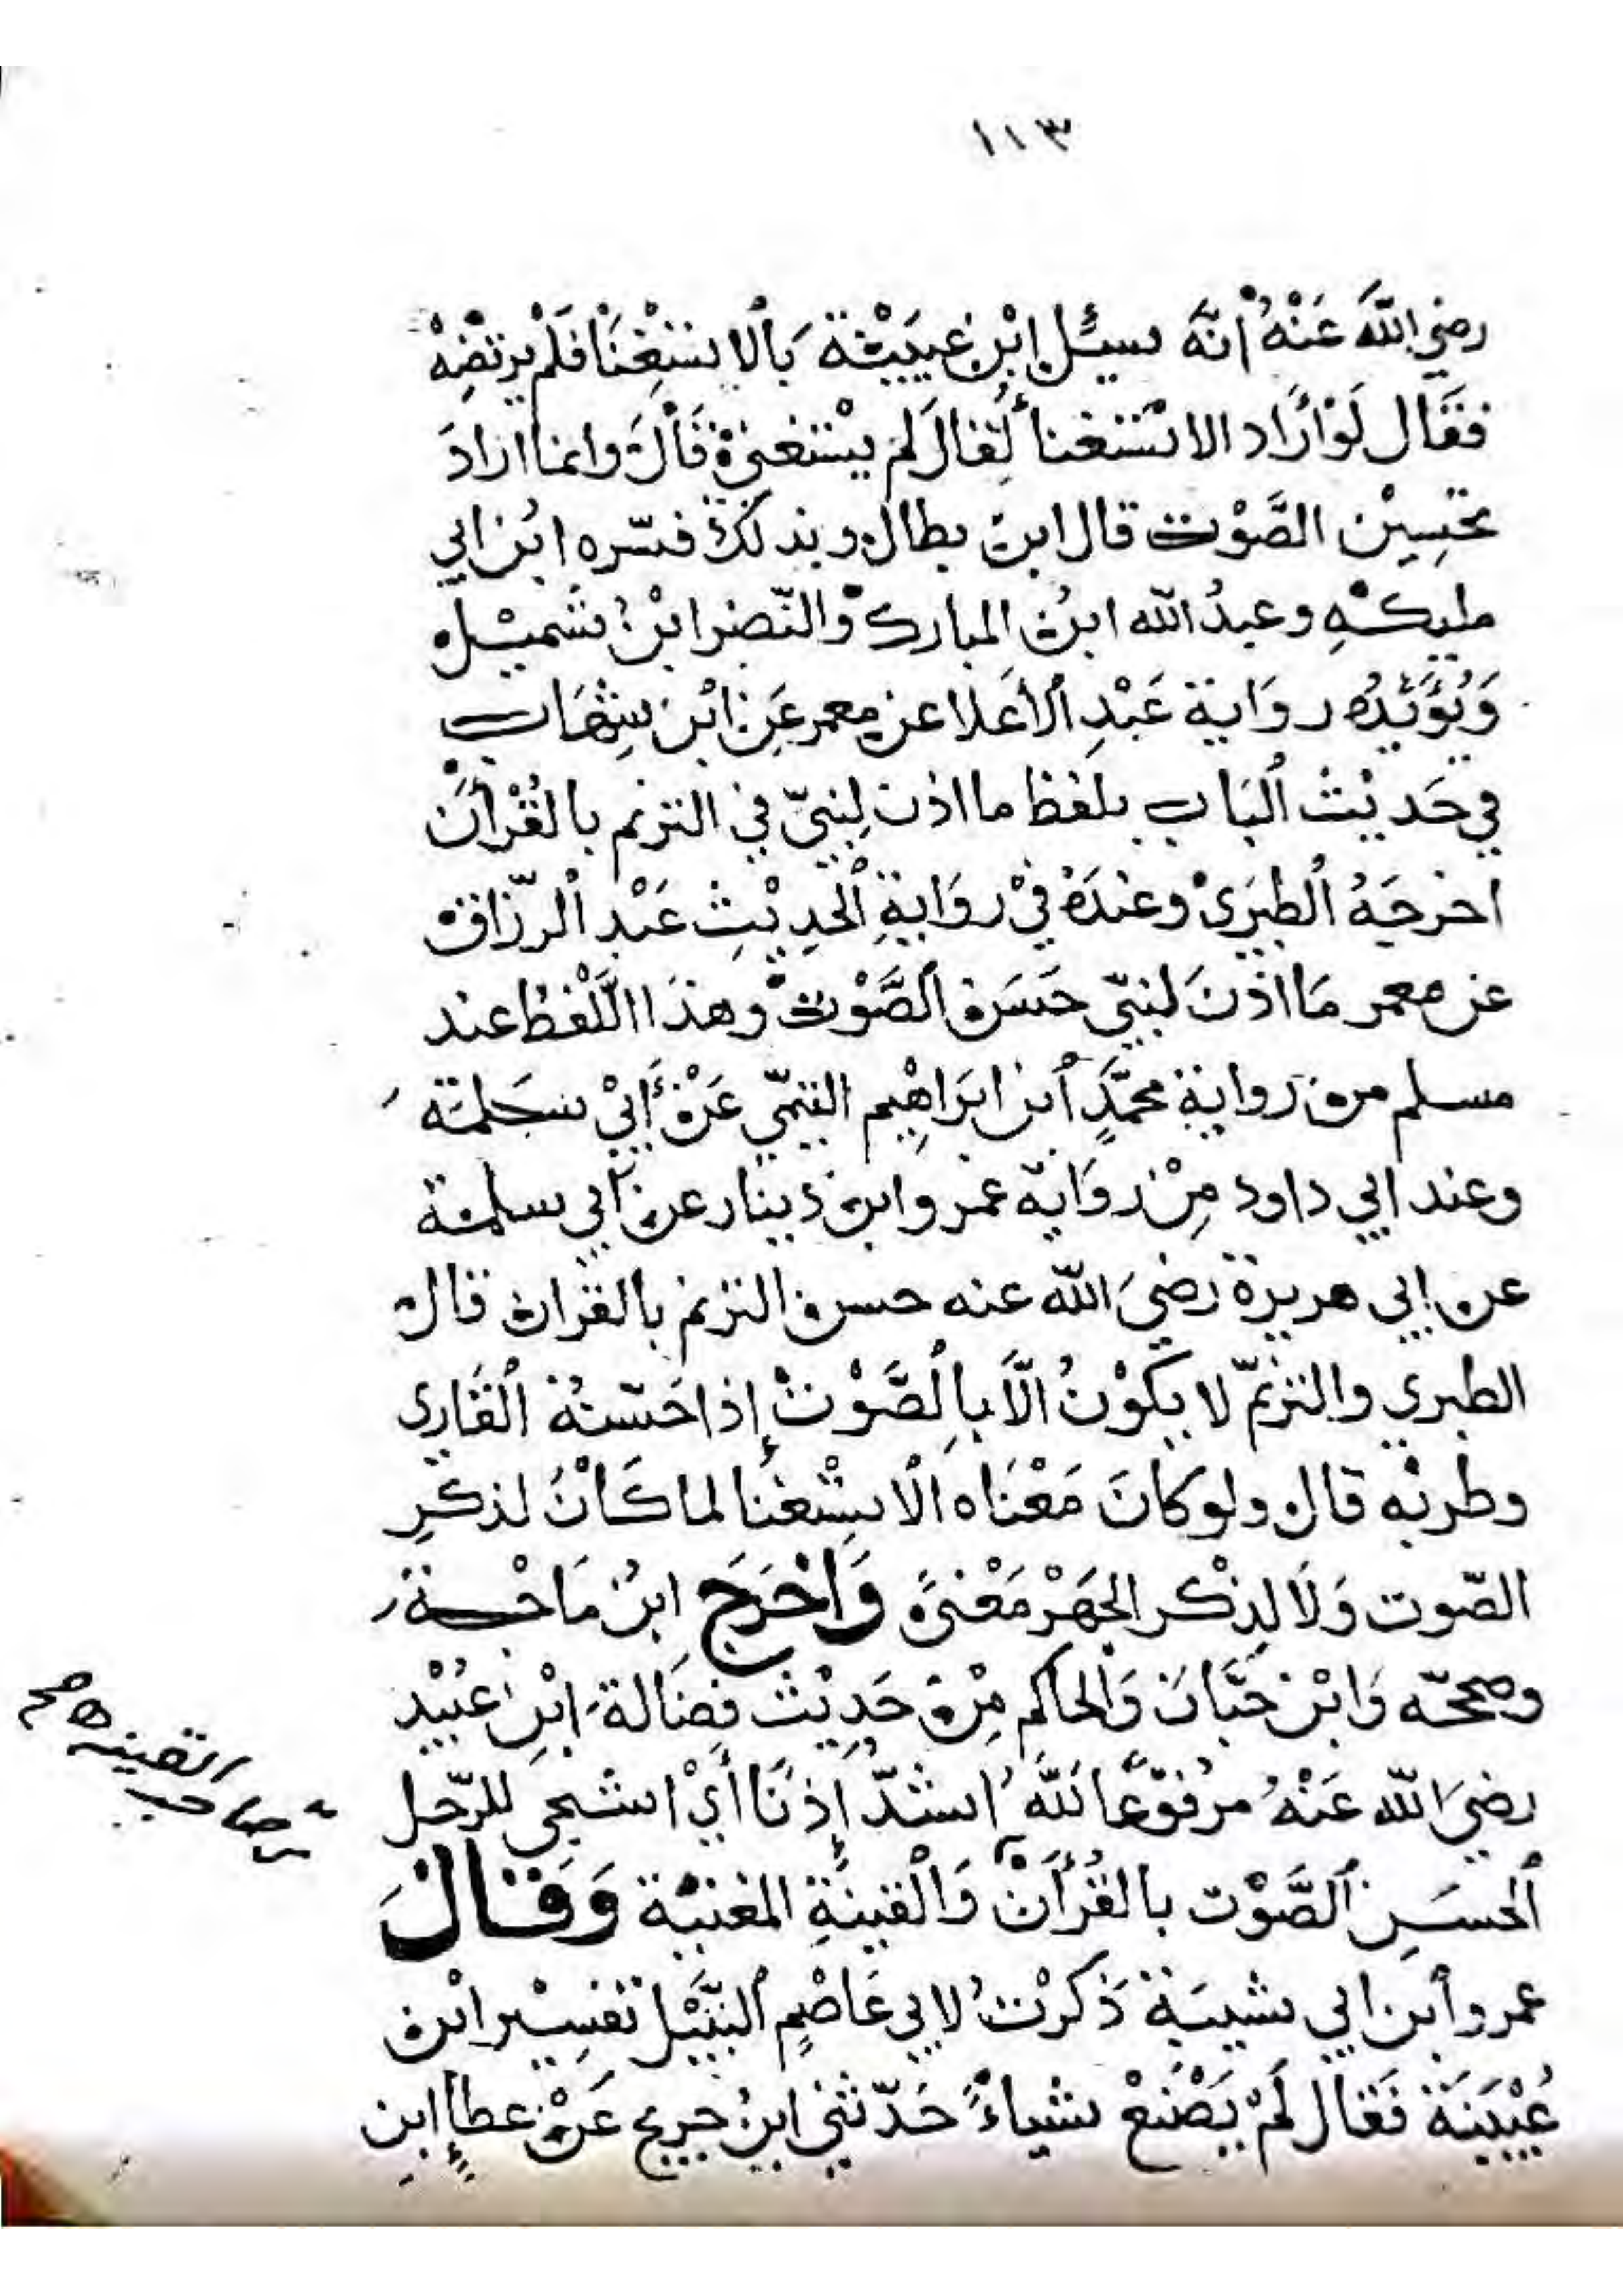 ١١٣
رضي اللهَ عَنْهُ انّهَ سيئل إبْن عيَيْنة بَالاستغْنَا فلم يرتضه
فقال لَوْ ارَاد الاستغنا لقال لم يستغني قَالَ وانما اراد
تحسِيْن الصَّوْت قال ابن بطال وبذلك فسّره ابُن ابي
مليكةِ وعبدُ الله ابن المبارك والنّضر ابْن شميْل
وَيُؤيّدُه روَاية عَبْدِ الأعَلا عن معمر عَن ابْن شِهَاب
في حَديْث البَاب بلفظ ما اذن لِنبيّ في الترنم بالقُرْأن
اخرجَهُ الطبَرَي وعندَهُ فيْ روَايةِ الحدِيْثِ عَبْد الرّزاق
عن معمر مَا اذنَ لنبيّ حَسَن الصَّوْت وهذَا اللّفظ عند
مسلم من رواية محمَّدٍ أبن ابَراهِيم التيمّي عَنْ أبيْ سَلمَة
وعند ابي داود مِنْ روَاية عمرو ابن دينار عن ابي سلمة
عن إبي هريرة رضيَ الله عنه حسن الترنم بالقران قال
الطبري والترنمّ لا يكوْنُ الَّا بالصَّوْتْ إذا حَسّنهُ القَاري
وطربْه قال ولو كانَ مَعْنَاه الاستْغنَا لما كَانَ لذكرِ
الصّوت وَلَا لذِكْر الجَهْر مَعْنىً وَاخْرَجَ ابنُ مَاجْة
وصححّه وَابْن حَبّان وَالحاكم مِنْ حَدِيْث فضَالة ابْن عبُيْد
رضيَ الله عَنْهُ مرْفوْعًا اللهُ اشدّ إذنًا أيْ اشجى للرّجل
الحسَنِ الصَّوْت بالقُرْأن وَالْقينَةِ المغنيْة وَقَالَ
عمرو أبن ابي شيبَة ذَكرْتُ لابي عَاصِم النبّيْل تفسِيْر ابْن
عُيْيَنَة فَقال لَمْ يَصْنَعْ شياءً حَدّثني ابنُ جريج عَنْ عطا إبن
من صاحب القينه صح